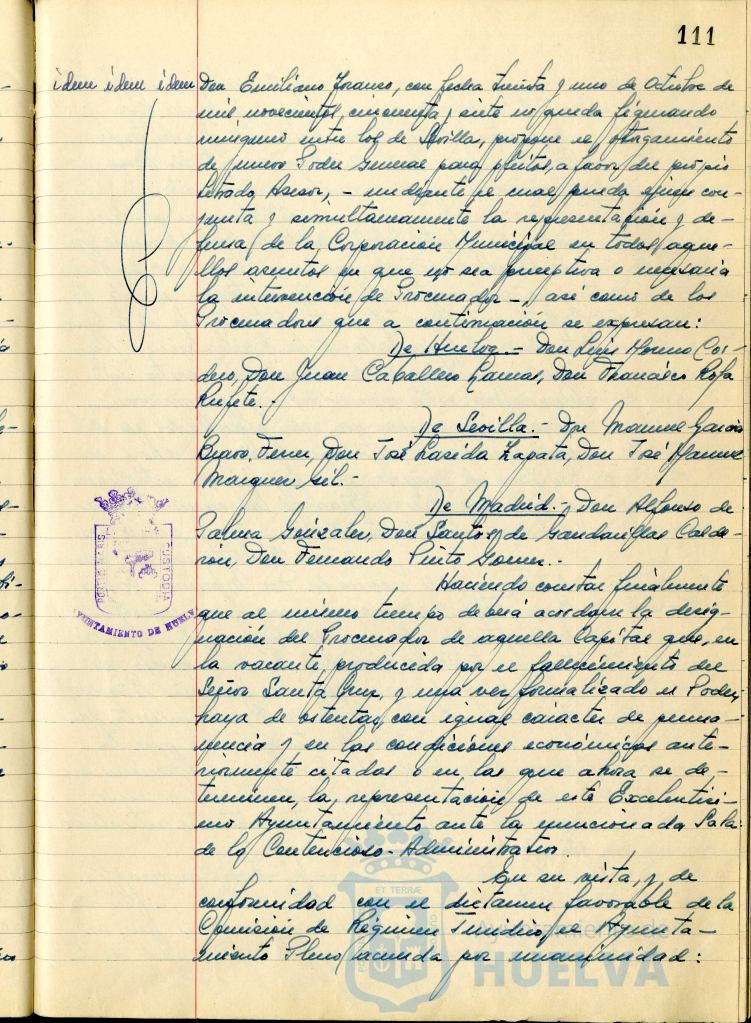 111
idem idem idem
Don Emiliano Franco, con fecha treinta y uno de Octubre de
mil novecientos cincuenta y siete no queda figurando
ninguno entre los de Sevilla, propone el otorgamiento
de nuevo Poder General para pleitos, a favor del propio
Letrado Asesor, - mediante el cual pueda ejercer con-
junta y simultaneamente la representación y de-
fensa de la Corporación Municipal en todos aque-
llos asuntos en que no sea preceptiva o necesaria
la intervención de Procurador -, así como de los
Procuradores que a continuación se expresan:
De Huelva.- Don Luis Moreno Cor-
dero, Don Juan Caballero Lamas, Don Francisco Rofa
Rufete.-
De Sevilla.- Don Manuel García
Bravo Ferrer, Don José Laseida Zapata, Don José Manuel
Marquez Gil.-
De Madrid.- Don Alfonso de
Palma Gonzalez, Don Santos de Gandarillas Calde-
rón, Don Fernando Pinto Gomez.-
Haciendo constar finalmente
que al mismo tiempo deberá acordarse la desig-
nación del Procurador de aquella Capital que, en
la vacante producida por el fallecimiento del
Señor Santa Cruz, y una vez formalizado el Poder,
haya de ostentar, con igual caracter de perma-
nencia y en las condiciones económicas ante-
riormente citadas o en las que ahora se de-
terminen, la representación de este Excelentísi-
mo Ayuntamiento ante la mencionada Sala
de lo Contencioso-Administrativo.
En su vista, y de
conformidad con el dictamen favorable de la
Comisión de Régimen Jurídico, el Ayunta-
miento Pleno acuerda por unanimidad:
PORTUS MARIS
CUSTODIA
AYUNTAMIENTO DE HUELVA
ET TERRÆ
Ayuntamiento de
HUELVA